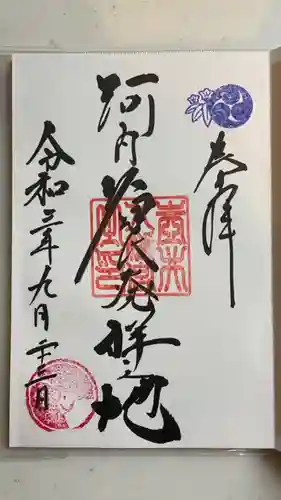 奉拝
河内源氏発祥之地
令和三年九月二十三日